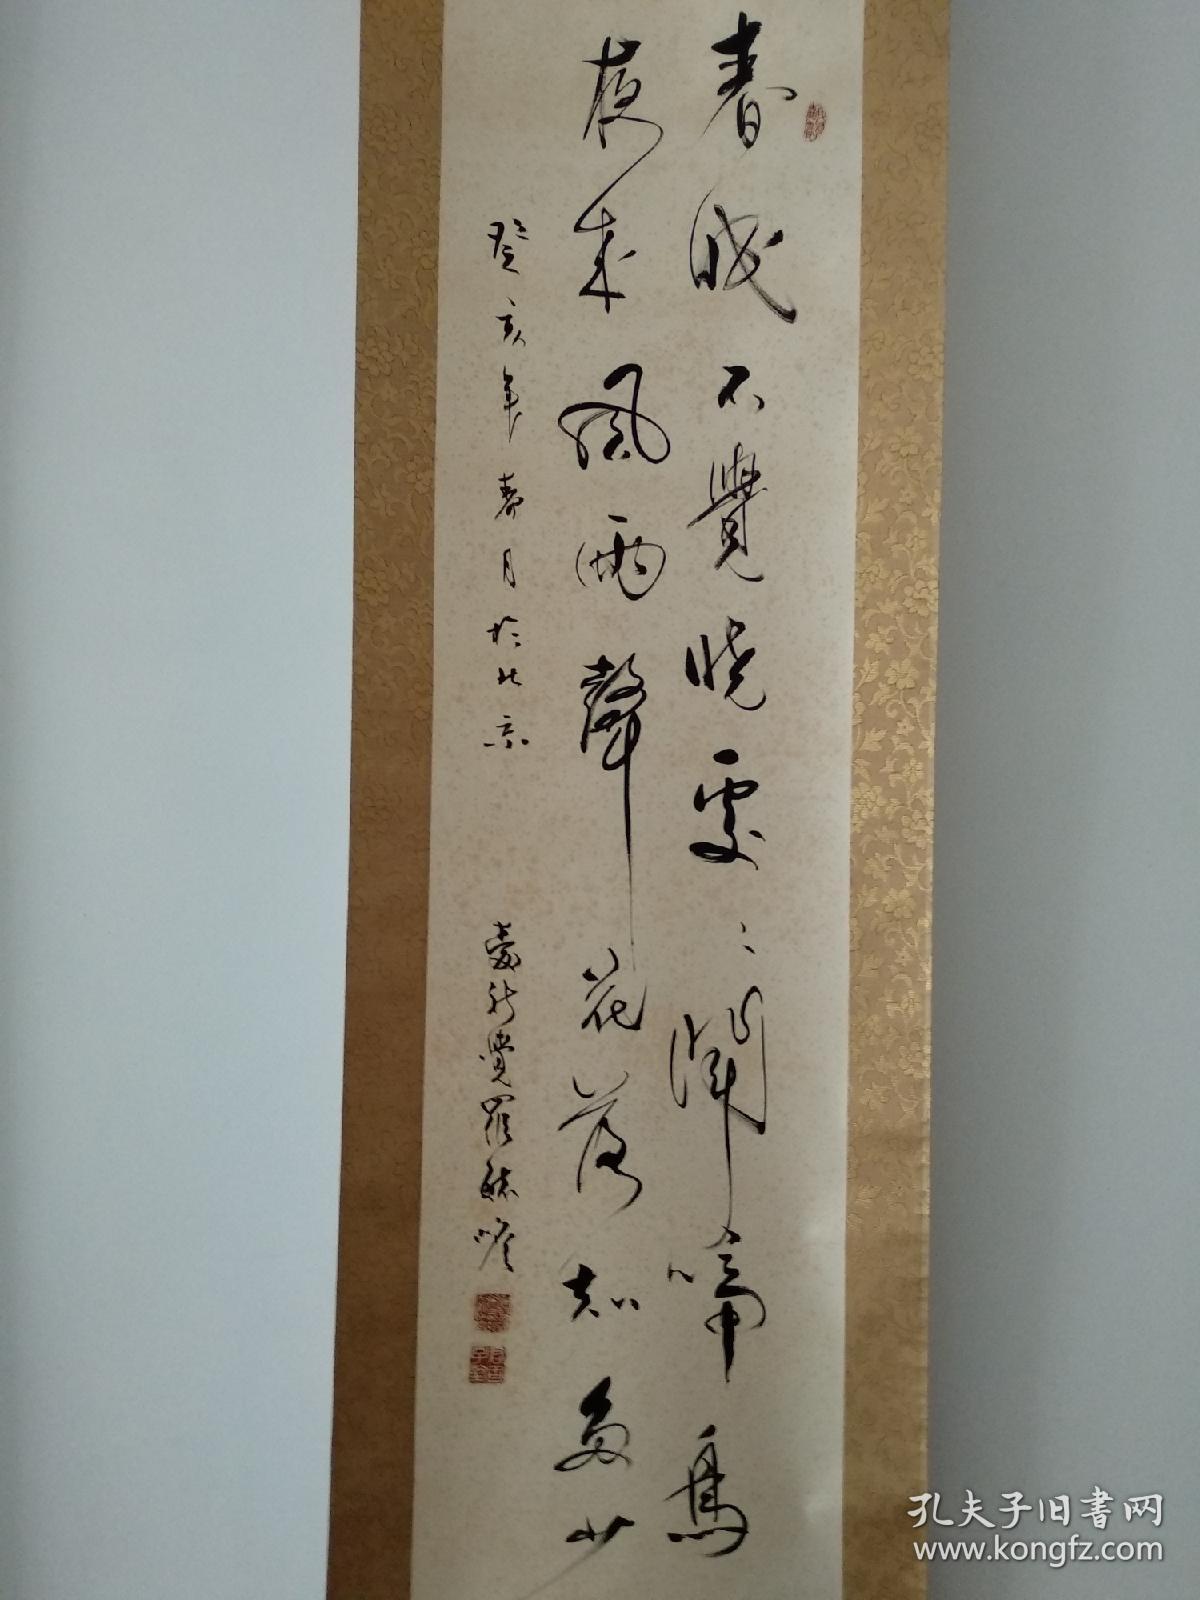 春眠不覺曉處々聞啼鳥
夜来風雨聲花落知多少
癸亥年春月於北京
愛新覺羅毓嶦
孔夫子旧书网
www.kongfz.com